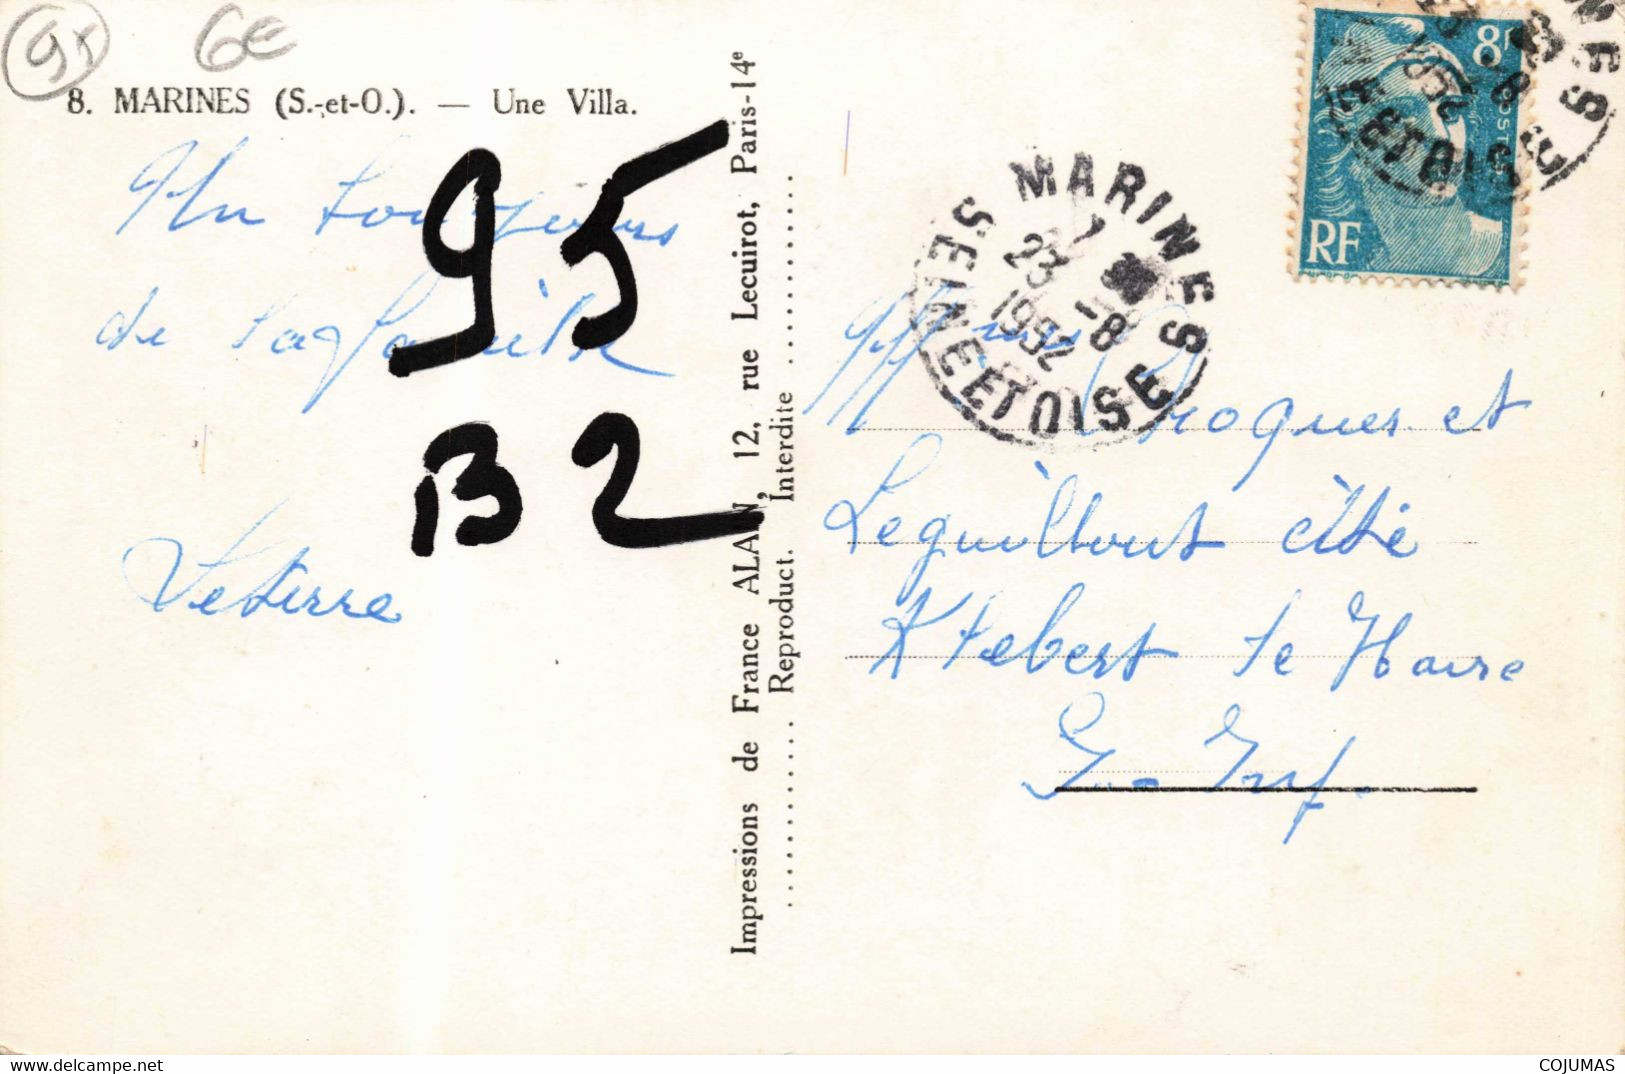 95
6€
8. MARINES (S.-et-O.). — Une Villa.
Un toujours
de
Leterre
95
B2
Impressions de France ALAIN, 12, rue Lecuirot, Paris-14e
Reproduct. Interdite
MARINES
SEINE ET OISE
23 -8
1952
8f
POSTES
RF
et
Leguillout cité
Klebert le Havre
S.-Inf.
COJUMAS